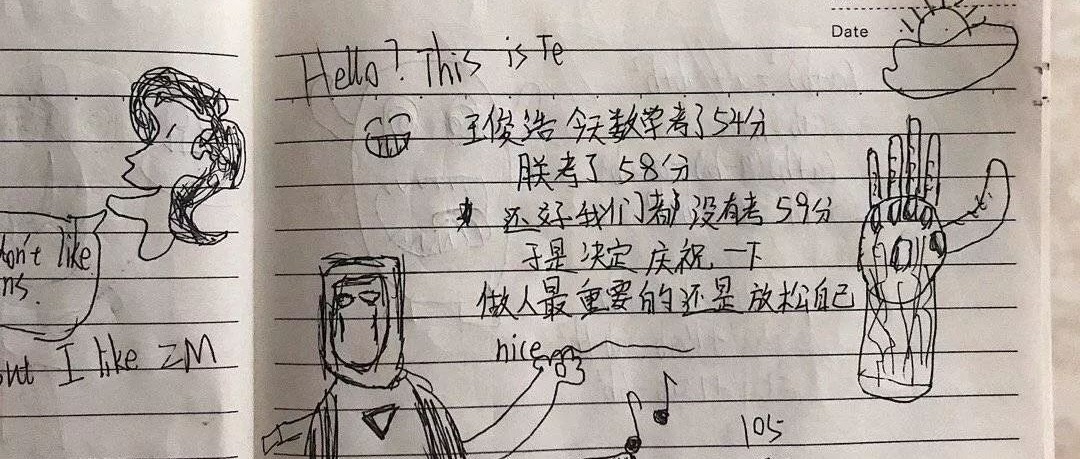 Date
Hello? This is Te
王俊浩 今天数学考了54分
朕考了 58分
还好我们都没有考 59分
于是 决定 庆祝 一下
做人最重要的还是放松自己
nice
105
don't like
ns.
but I like ZM